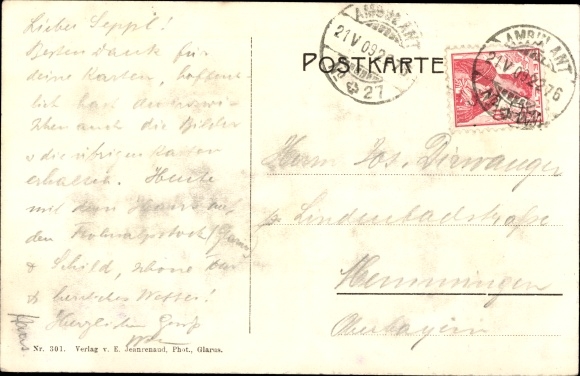 Lieber Seppl!
Besten Dank für
deine Karten, hoffent-
lich hast du inzwi-
schen auch die Bilder
u die übrigen Karten
erhalten. Heute
mit dem Hans auf
den
& Schild, schöne
herrliches Wetter!
Herzlichen Gruß
Nr. 301. Verlag v. E. Jeanrenaud, Phot., Glarus.
AMBULANT
21 V 09
27
POSTKARTE
AMBULANT
21 V 09
Herrn Jos. Dirwanger
Lindenbadstraße
Memmingen
Oberbayern